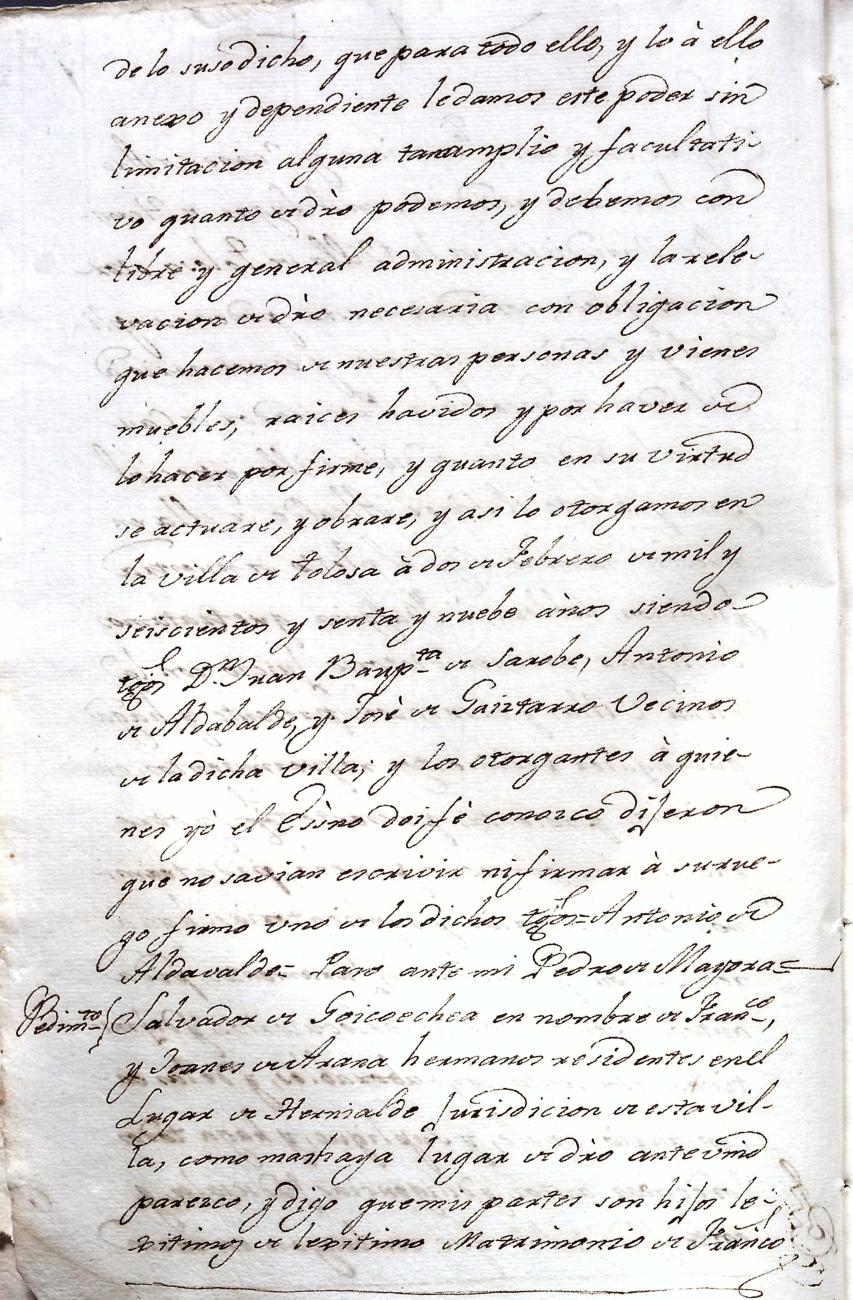 de lo susodicho, que para todo ello, y lo à ello
anexo y dependiente le damos este poder sin
limitacion alguna tan amplio y facultati-
vo quanto de dr̃o podemos, y debemos con
libre y general administracion, y la rele-
vacion de dr̃o necesaria con obligacion
que hacemos de nuestras personas y vienes
muebles, raices havidos y por haver de
lo hacer por firme, y quanto en su virtud
se actuare, y obrare, y asi lo otorgamos en
la villa de Tolosa à dos de Febrero de mil y
seiscientos y senta y nuebe años siendo
tgõs Dⁿ Juan Baupᵗᵃ de Sarobe, Antonio
de Aldabalde, y Josè de Gaiztarro Vecinos
de la dicha villa; y los otorgantes à quie-
nes yò el Essno doi fè conozco dijeron
que no savian escrivir ni firmar à su rue-
go firmo uno de los dichos tgõs = Antonio de
Aldavalde = Paso ante mi Pedro de Mayora =
Pedimᵗᵒ Salvador de Goicoechea en nombre de Franᶜᵒ,
y Joanes de Arana hermanos residentes en el
Lugar de Hernialde jurisdicion de esta vil-
la, como mas haya lugar de dr̃o ante vmd
parezco, y digo que mis partes son hijos le-
xitimos de lexitimo Matrimonio de Franco